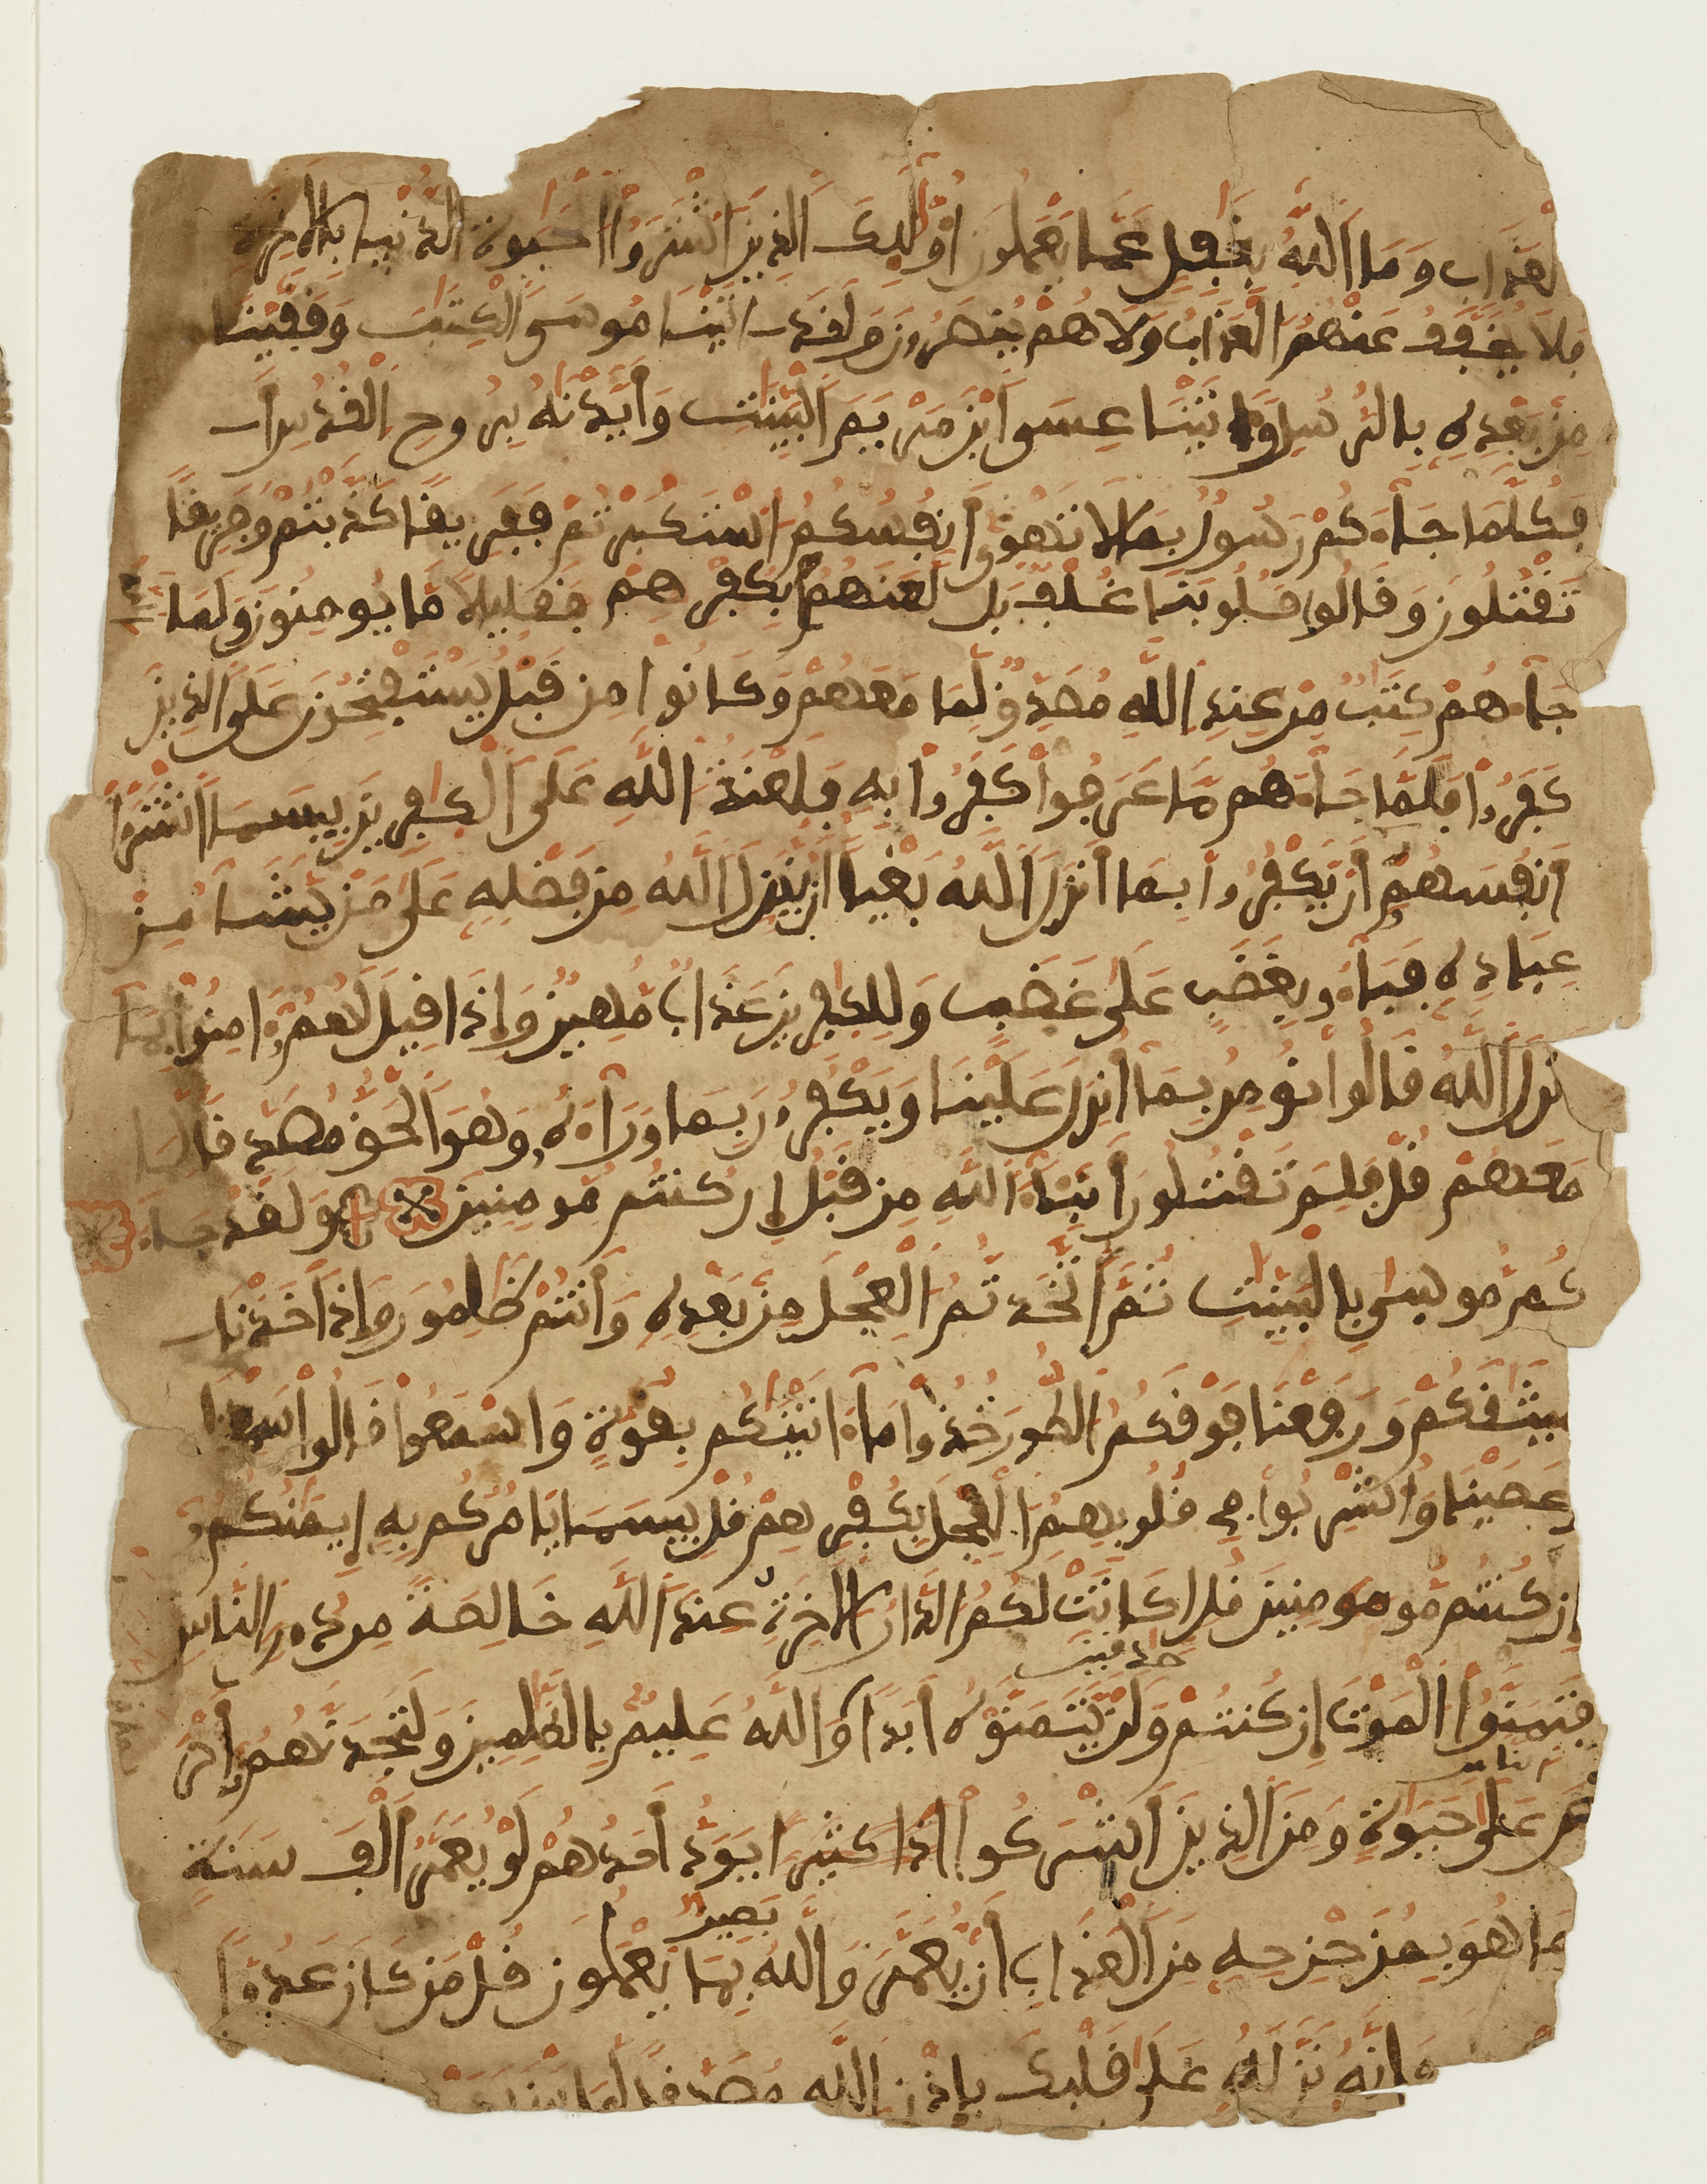 العذاب وما الله بغفل عما يعملون أوليك الذين اشتروا الحيوة الدنيا بالاخرة
فلا يخفف عنهم العذاب ولا هم ينصرون ولقد اتينا موسى الكتب وقفينا
من بعده بالرسل واتينا عيسى ابن مريم البينت وأيدنه بروح القدس
أفكلما جاءكم رسول بما لا تهوى أنفسكم استكبرتم ففريقا كذبتم وفريقا
تقتلون وقالوا قلوبنا غلف بل لعنهم بكفرهم فقليلا ما يومنون ولما
جاءهم كتب من عند الله مصدق لما معهم وكانوا من قبل يستفتحون على الذين
كفروا فلما جاءهم ما عرفوا كفروا به فلعنة الله على الكفرين بيسما اشتروا
أنفسهم أن يكفروا بما أنزل الله بغيا ان ينزل الله من فضله على من يشاء من
عباده فباءو بغضب على غضب وللكفرين عذاب مهين وإذا قيل لهم امنوا بما
نزل الله قالوا نومن بما أنزل علينا ويكفرون بما وراءه وهو الحق مصدقا لما
معهم قل فلم تقتلون أنبياء الله من قبل إن كنتم مومنين ولقد جاء
كم موسى بالبينت ثم اتخذتم العجل من بعده وأنتم ظلمون وإذ اخذنا
ميثقكم ورفعنا فوقكم الطور خذوا ما اتينكم بقوة واسمعوا قالوا سمعنا
وعصينا واشربوا في قلوبهم العجل بكفرهم قل بيسما يامركم به إيمنكم
إن كنتم مومنين قل ان كانت لكم الدار الاخرة عند الله خالصة من دون الناس
صدقين
فتمنوا الموت إن كنتم ولن يتمنوه أبدا والله عليم بالظلمين ولتجدنهم أحر
الناس
ص على حيوة ومن الذين أشركوا يود أحدهم لو يعمر ألف سنة
بصير
وما هو بمزحزحه من العذاب أن يعمر والله بما يعملون قل من كان عدوا
فإنه نزله على قلبك بإذن الله مصدقا لما بين